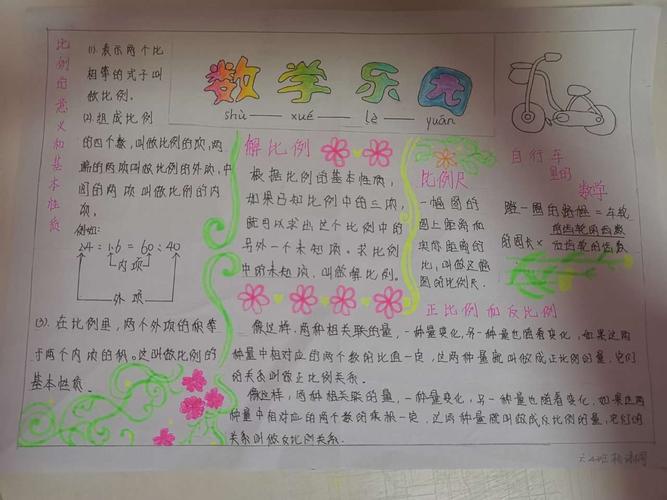 数学乐园
shù xué lè yuán
比例的意义和基本性质
(1). 表示两个比
相等的式子叫
做比例。
(2). 组成比例
的四个数,叫做比例的项,两
端的两项叫做比例的外项,中
间的两项叫做比例的内
项。
例如:
2.4:1.6=60:40
内项
外项
(3). 在比例里,两个外项的积等
于两个内项的积。这叫做比例的
基本性质。
解比例
根据比例的基本性质,
如果已知比例中的三项,
就可以求出这个比例中的
另外一个未知项。求比例
中的未知项,叫做解比例。
比例尺
一幅图的
图上距离和
实际距离的
比,叫做这幅
图的比例尺.
自行车
里的
数学
蹬一圈的路程=车轮
的周长×前齿轮的齿数
后齿轮的齿数
正比例和反比例
像这样,两种相关联的量,一种量变化,另一种量也随着变化,如果这两
种量中相对应的两个数的比值一定,这两种量就叫做成正比例的量,它们
的关系叫做正比例关系.
像这样,两种相关联的量,一种量变化,另一种量也随着变化,如果这两
种量中相对应的两个数的乘积一定,这两种量就叫做成反比例的量,它们的
关系叫做反比例关系.